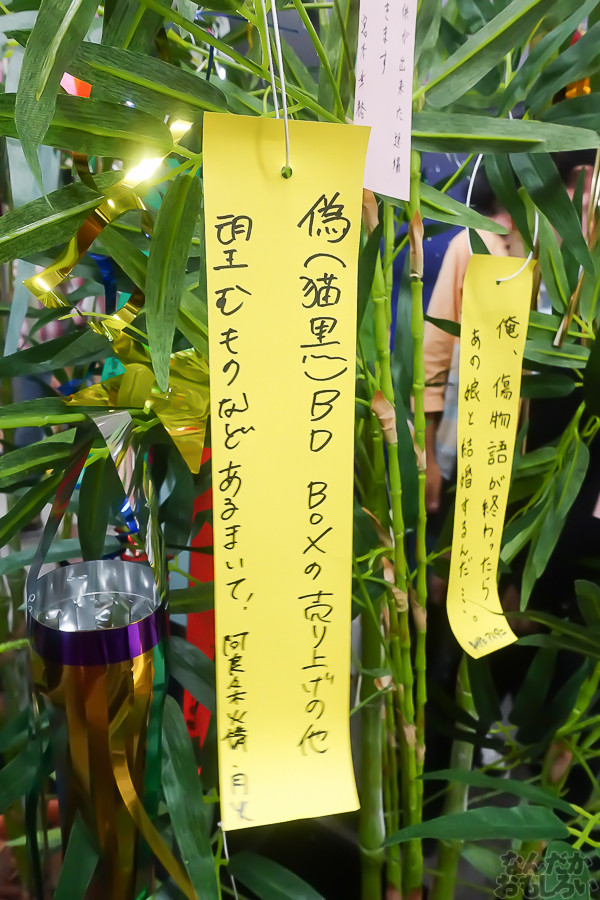 偽(猫黒)BD BOXの売り上げの他
望むものなどあるまいて!
阿良々木火憐・月火
俺、傷物語が終わったら
あの娘と結婚するんだ…。
供が出来た迷場
きます
なんだか
おもしろい